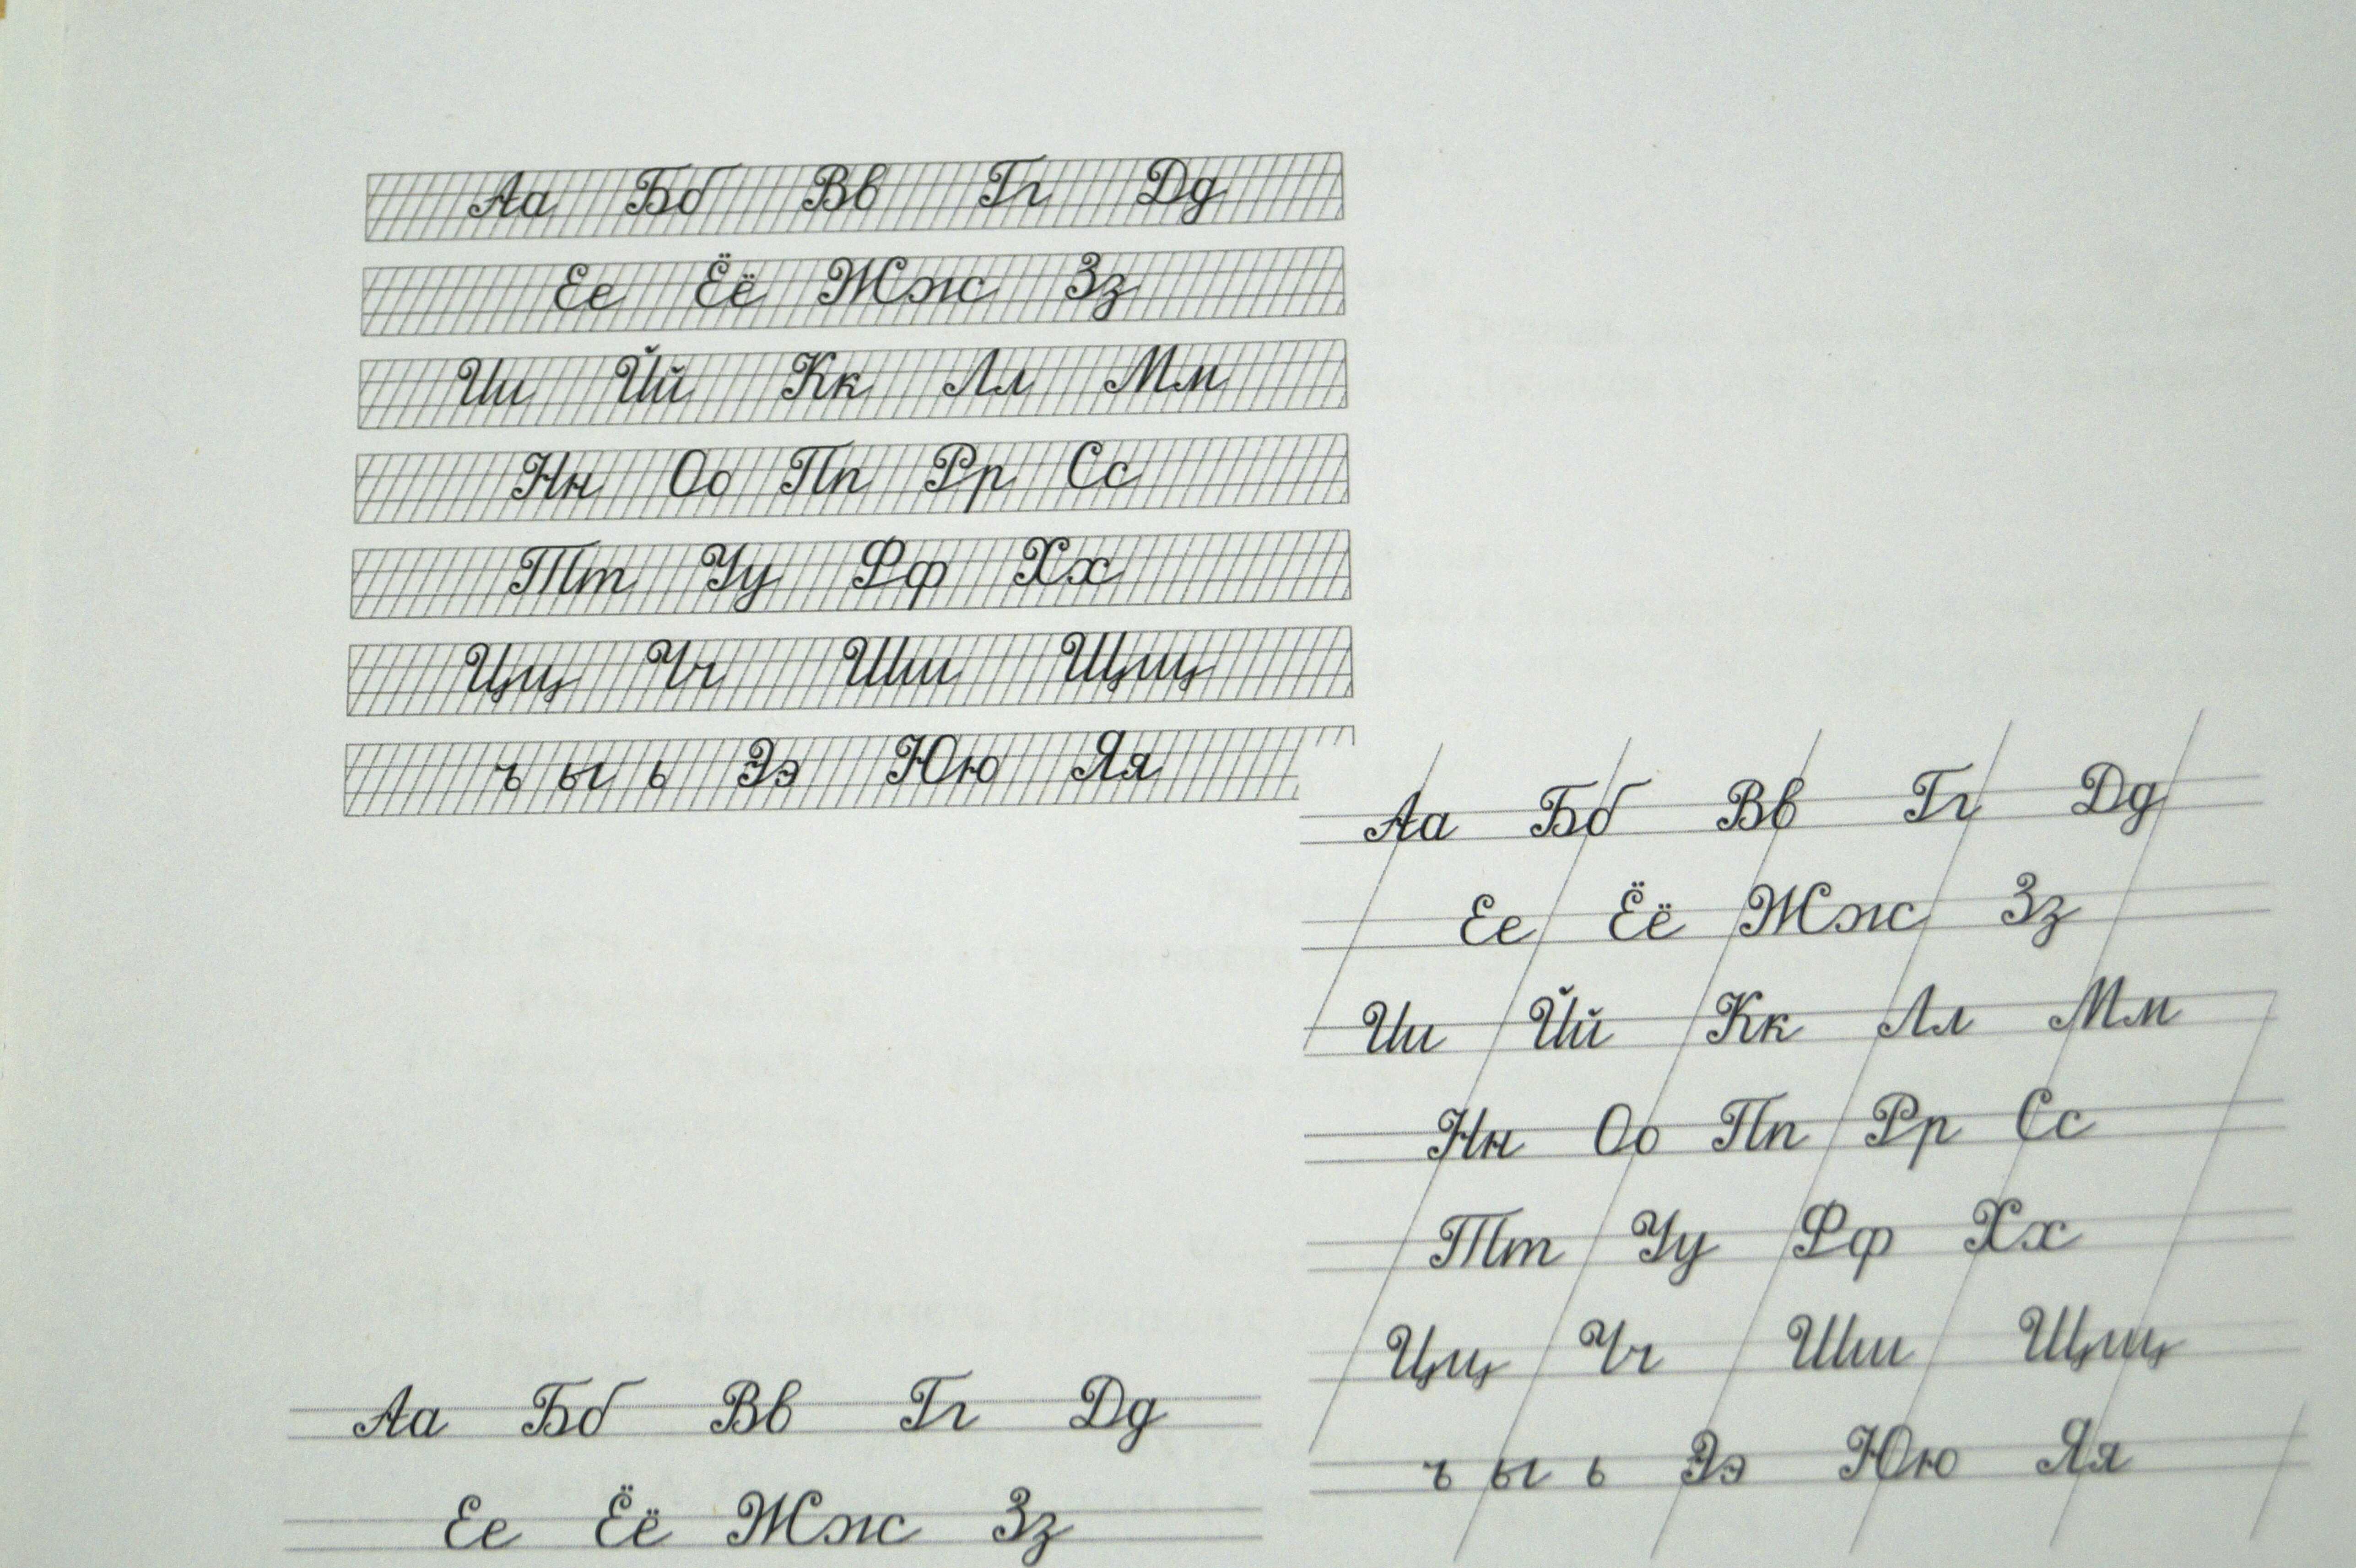 Аа Бб Вв Гг Дд
Ее Ёё Жж Зз
Ии Йй Кк Лл Мм
Нн Оо Пп Рр Сс
Тт Уу Фф Хх
Цц Чч Шш Щщ
ъ ы ь Ээ Юю Яя
Аа Бб Вв Гг Дд
Ее Ёё Жж Зз
Ии Йй Кк Лл Мм
Нн Оо Пп Рр Сс
Тт Уу Фф Хх
Цц Чч Шш Щщ
ъ ы ь Ээ Юю Яя
Аа Бб Вв Гг Дд
Ее Ёё Жж Зз